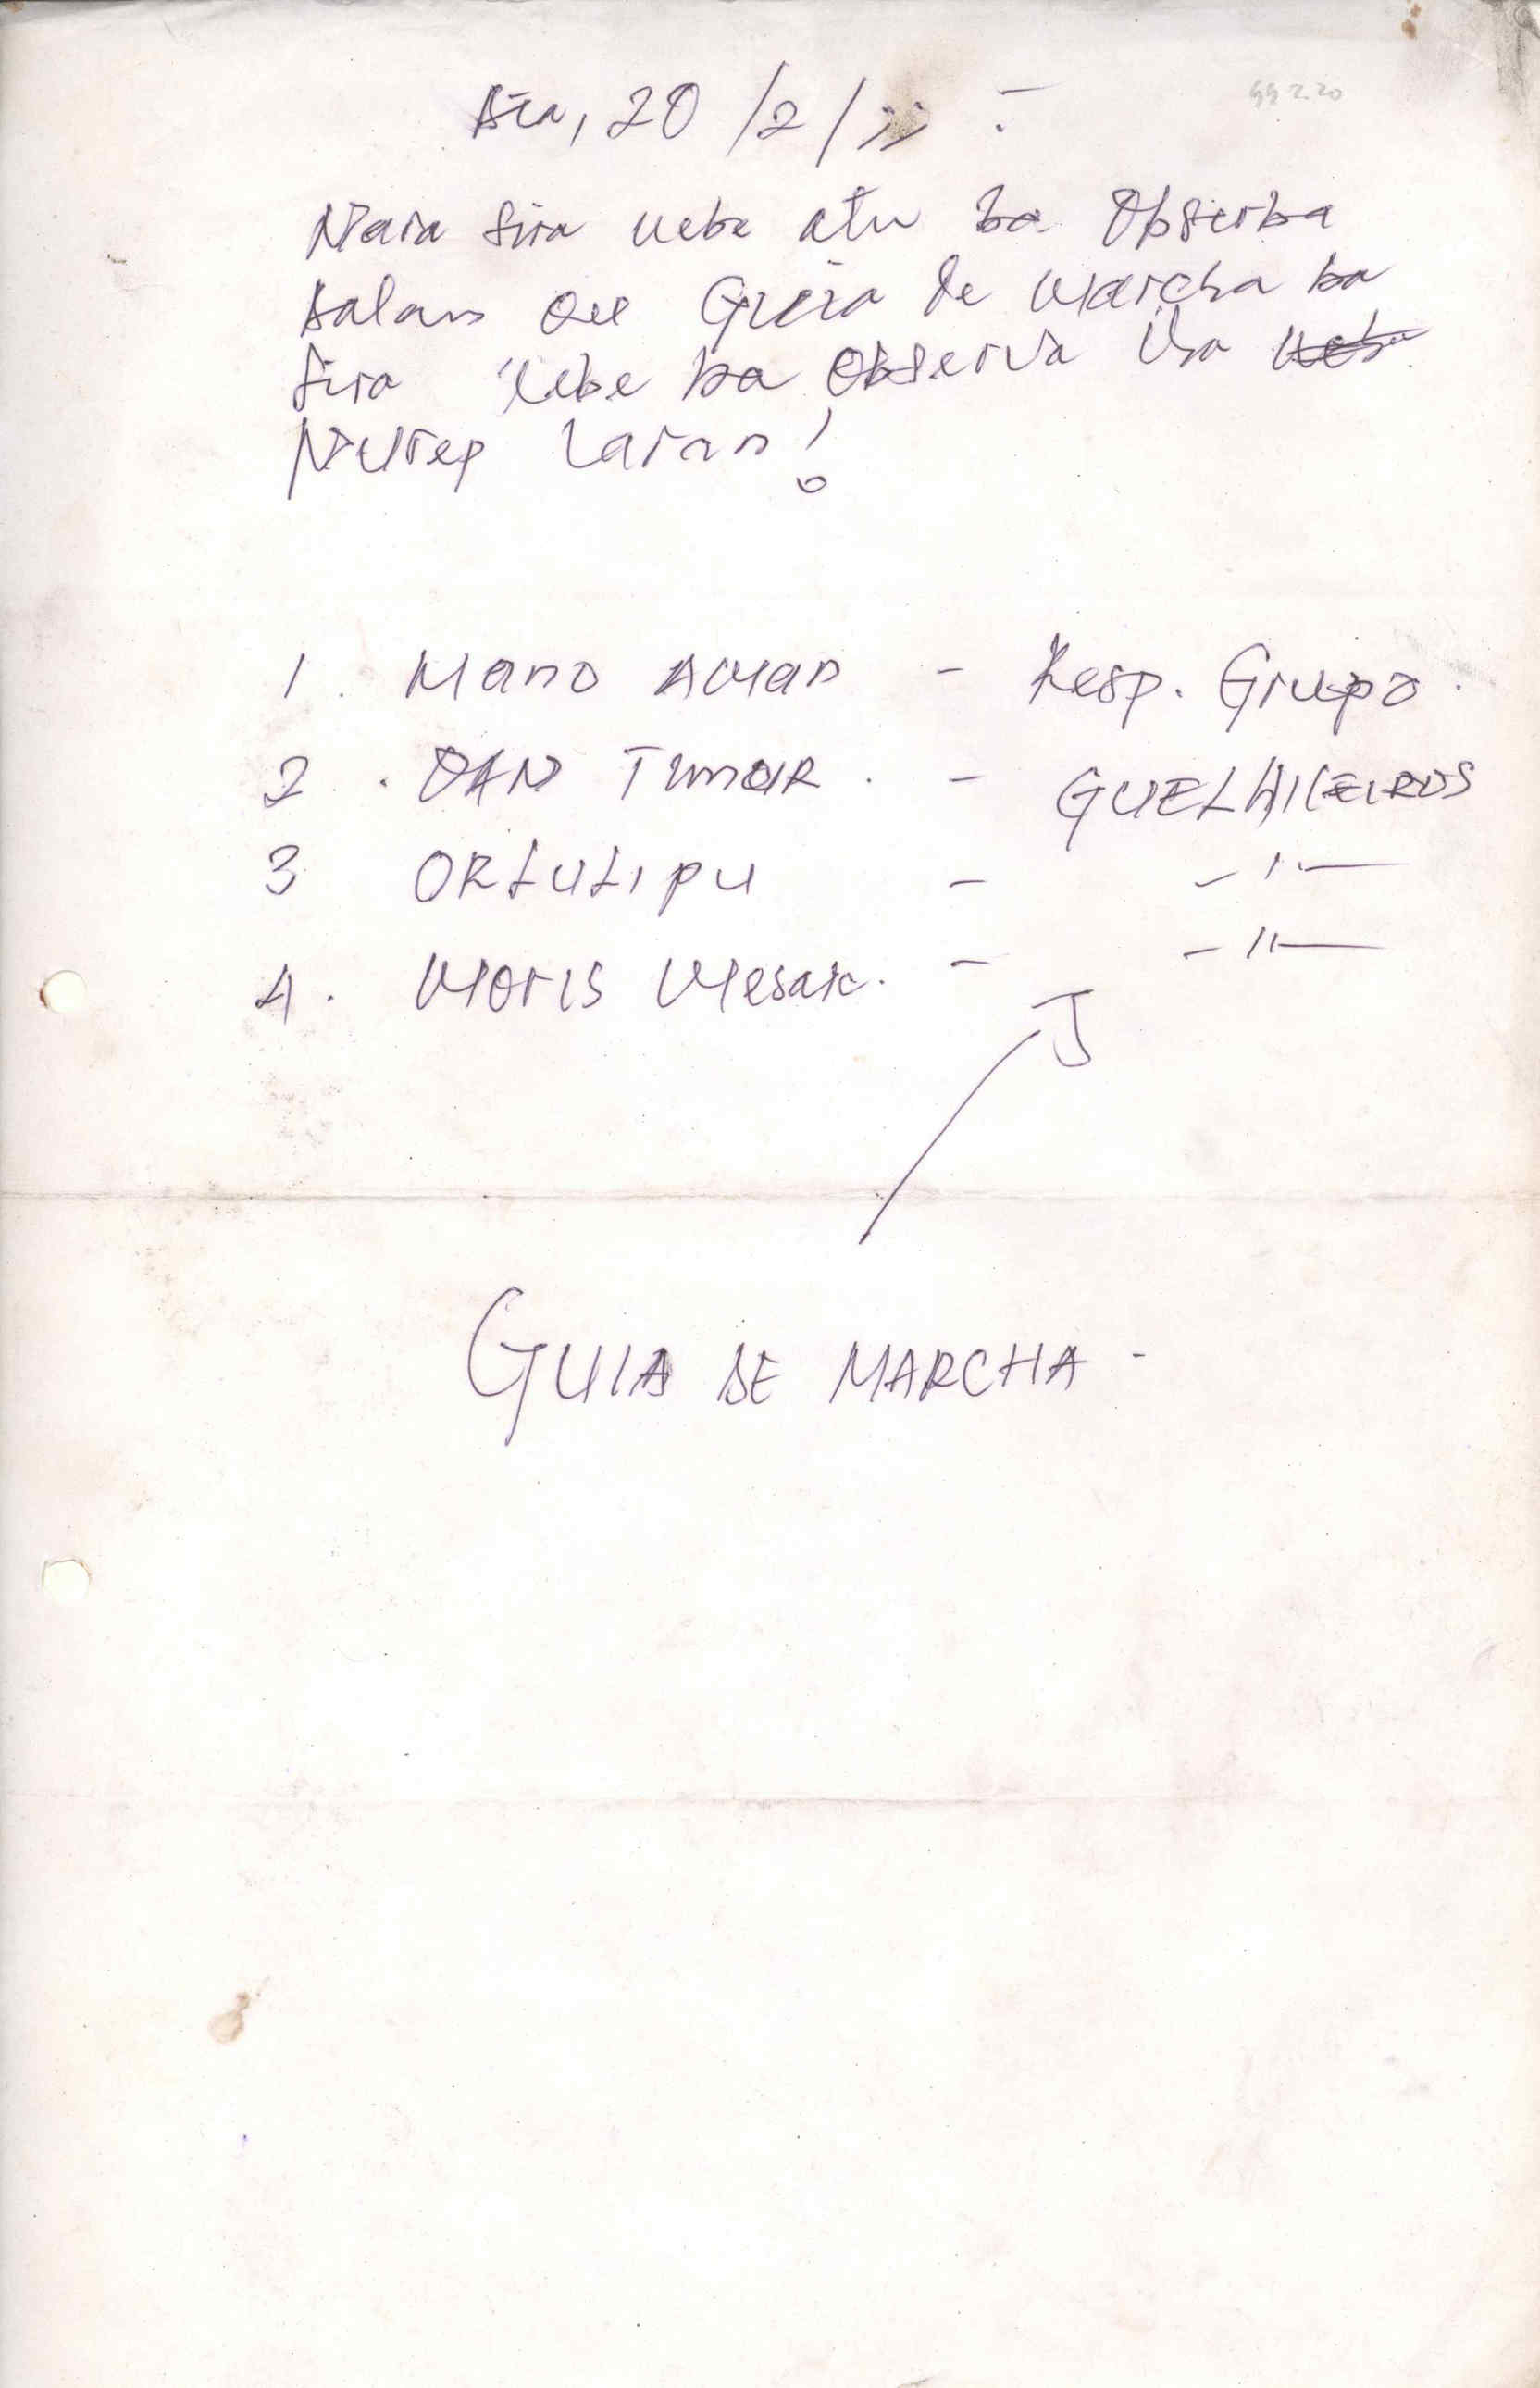 Dia, 20/2/99 -
99220
Naran sira nebe atu ba Observa
dalan ou Guia de Marcha ba
sira nebe ba Observa iha
Nurep laran!
1. Mano Aman - Resp. Grupo.
2. OAN Timur. - GUELHILEIROS
3 ORLULIPU - -"-
4. Moris Mesak. - -"-
GUIA DE MARCHA -